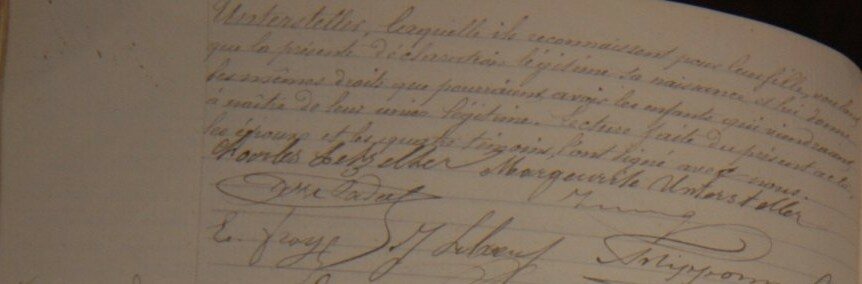 Untersteller, laquelle ils reconnaissent pour leur fille, voulant
que la présente déclaration légitime sa naissance et lui donne
les mêmes droits que pourraient avoir les enfants qui viendraient
à naître de leur union légitime. Lecture faite du présent acte,
les époux et les quatre témoins, l'ont signé avec nous.
Charles Marguerite Untersteller
E. Froye J Leboeuf